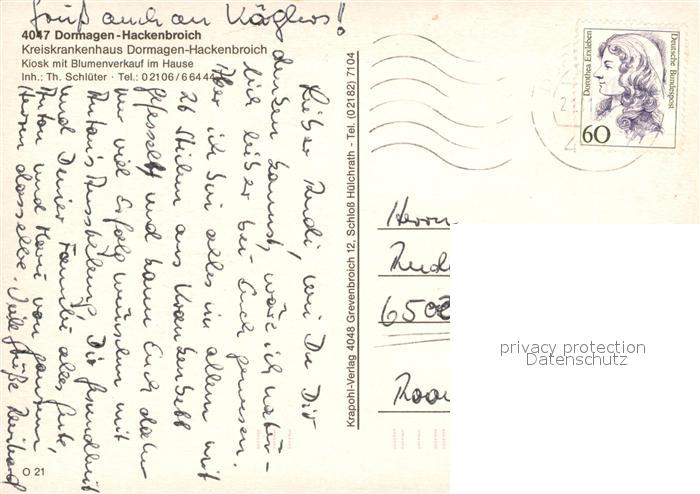 Gruß auch an Käglers!
4047 Dormagen-Hackenbroich
Kreiskrankenhaus Dormagen-Hackenbroich
Kiosk mit Blumenverkauf im Hause
Inh.: Th. Schlüter · Tel.: 0 21 06 / 6 64 44
Lieber Rudi, wie Du Dir
denken kannst, wäre ich natür-
lich lieber bei Euch gewesen.
Aber ich bin alles in allem mit
26 Stichen ans Krankenbett
gefesselt und kann Euch daher
nur viel Erfolg wünschen mit
Ausstellung, Dir Gesundheit
und Deiner Familie alles Gute,
und von ganzem
Herzen dasselbe. Viele Grüße
Krapohl-Verlag 4048 Grevenbroich 12, Schloß Hülchrath - Tel. (02182) 7104
Dorothea Erxleben
Deutsche Bundespost
60
Herrn
Rudi
6502
O 21
privacy protection
Datenschutz